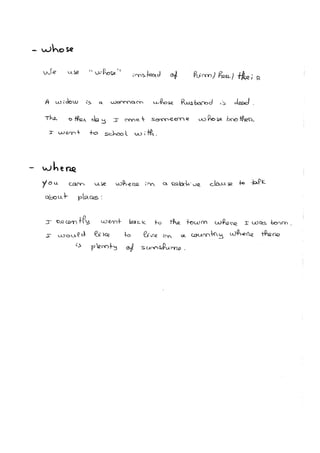 - whose
We use "whose" instead of him / her / their
A widow is a womam whose husband is dead.
The other day I met someone whose brother
I went to school with.
- where
you can use where in a relative clause to talk
about places:
I recently went back to the town where I was born.
I would like to live in a country where there
is plenty of sunshine.